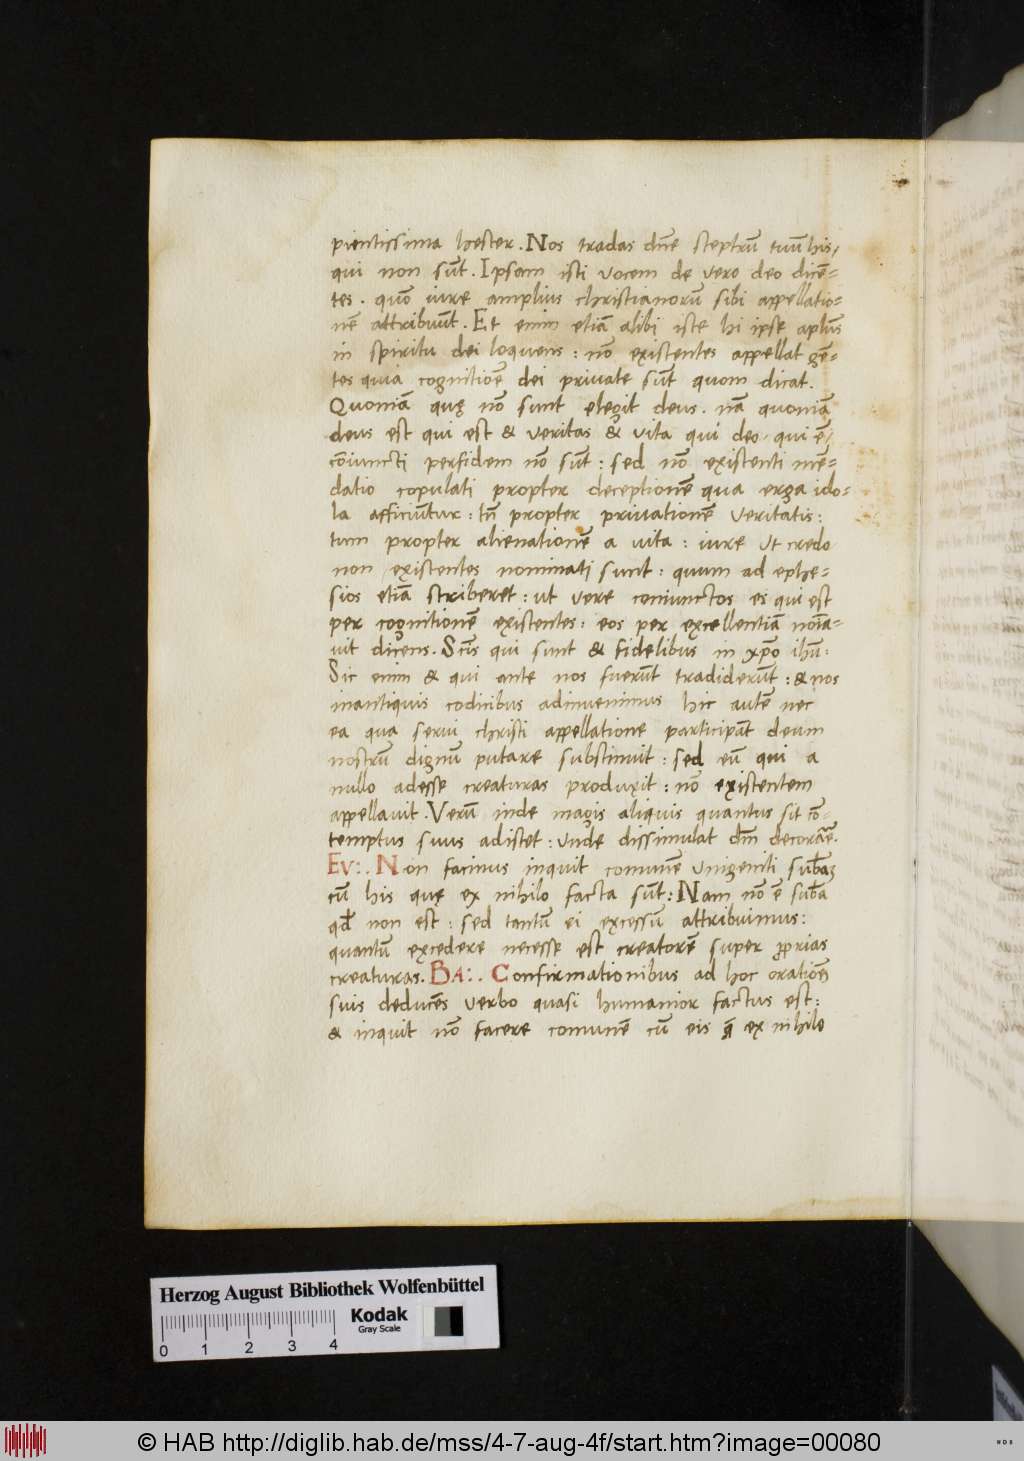 pientissima hester. Nos tradas dn̄e sceptrū tuū his,
qui non sūt. Ipsam isti vocem de vero deo dicē=
tes. quō iure amplius christianorū sibi appellatio=
nē attribuūt. Et enim etiā alibi iste hi ipse aplūs
in spiritu dei loquens: nō existentes appellat gē=
tes quia cognitiōe dei private sūt quom dicat.
Quoniā quę nō sunt elegit deus. nā quoniā
deus est qui est & veritas & vita qui deo, qui ē,
cōiuncti perfidem nō sūt: sed nō existenti mē=
datio copulati propter deceptionē qua erga ido=
la afficiūtur: tn̄ propter privationē veritatis:
tum propter alienationē a vita: iure ut credo
non existentes nominati sunt: quum ad ephe=
sios etiā scriberet: ut vere coniunctos es qui est
per cognitionē existentes: eos per excellentiā noīa=
vit dicens. Scīs qui sunt & fidelibus in xp̄o ihū:
Sic enim & qui ante nos fuerūt tradiderūt: & nos
inantiquis codicibus adinvenimus hic autē nec
ea qua servi christi appellatione participāt deum
nostrū dignū putare substinuit: sed eū qui a
nullo adesse creaturas produxit: nō existentem
appellavit. Verū inde magis aliquis quantus sit cō=
temptus suus adistet: unde dissimulat dm̄ decorarē.
EV:. Non facimus inquit comunē unigeniti subāz
cū his quę ex nihilo facta sūt: Nam nō ē subā
qd̄ non est: sed tantū ei excessū attribuimus:
quantū excedere necesse est creatorē super ꝓprias
creaturas. BA:. Confirmationibus ad hoc orationē
suis deducēs verbo quasi humanior factus est:
& inquit nō facere comunē cū eis q̄ ex nihilo
Herzog August Bibliothek Wolfenbüttel
Kodak
Gray Scale
0 1 2 3 4
© HAB http://diglib.hab.de/mss/4-7-aug-4f/start.htm?image=00080